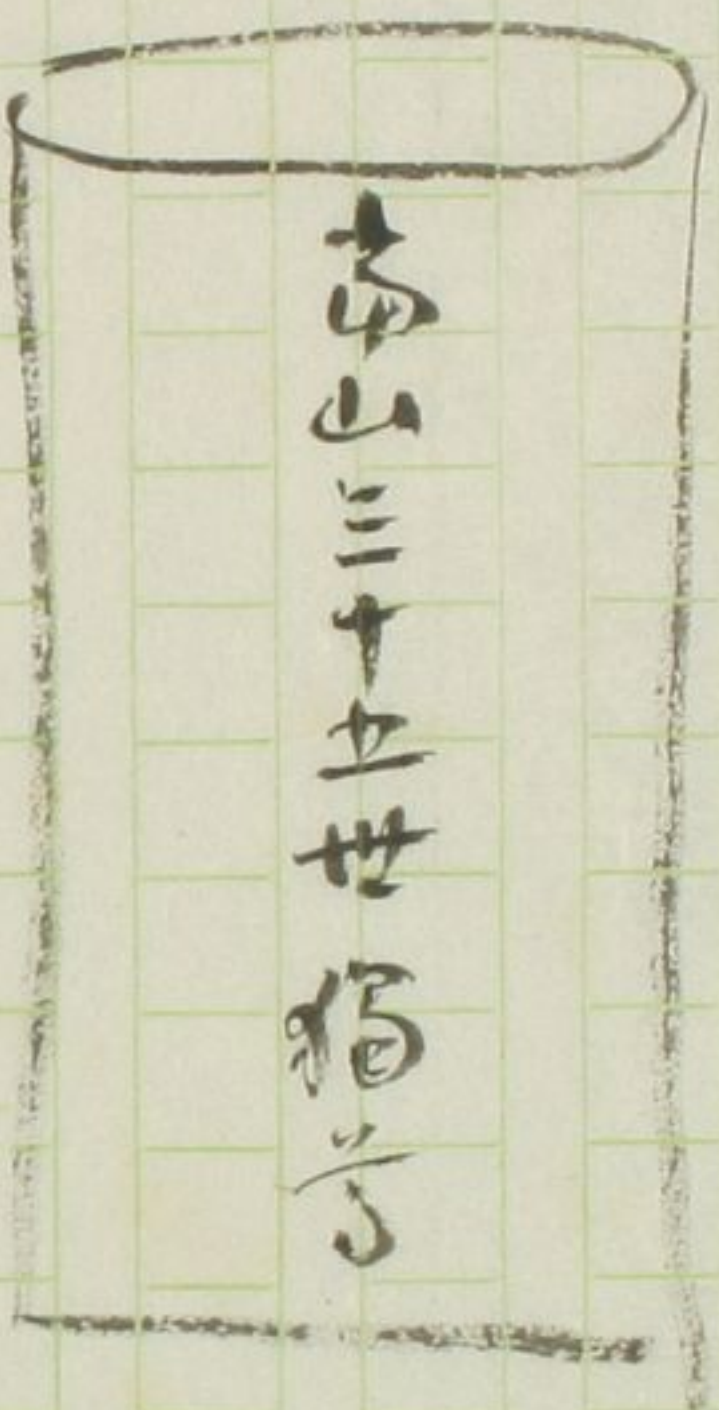 南山三十五世獨芳